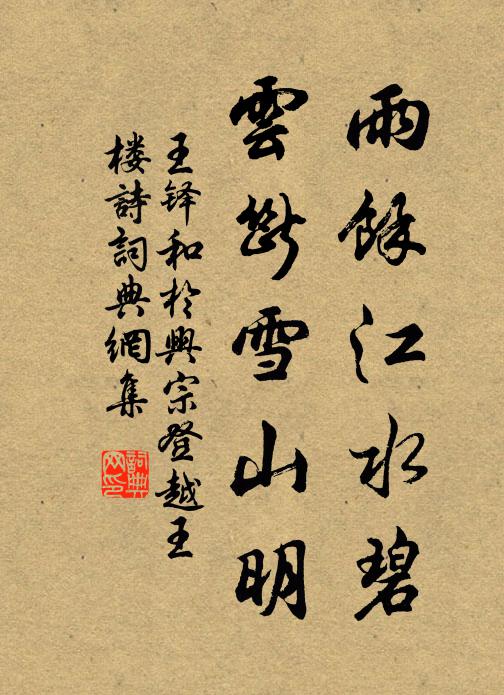 雨餘江水碧
雲斷雪山明
王铎和於興宗登越王
楼詩詞典網集
詞典网印